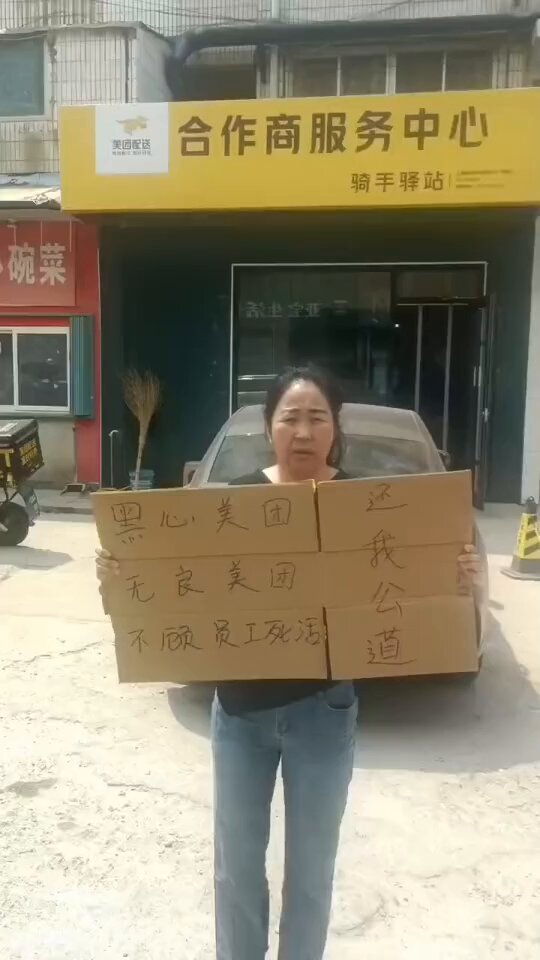 美团配送
合作商服务中心
骑手驿站
碗菜
亚宝生活
黑心美团
无良美团
不顾员工死活
还我公道